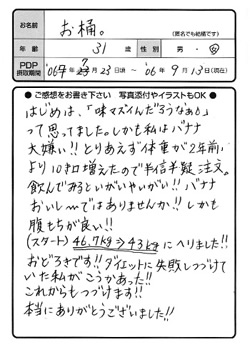 お名前 お桶。
(匿名でも結構です)
年齢 31歳 性別 男・女
PDP摂取期間 '06年7月23日頃~'06年9月13日(現在)
●ご感想をお書き下さい 写真添付やイラストもOK●
はじめは、「味マズイんだろうなぁ」
って思ってました。しかも私はバナナ
大嫌い!!とりあえず体重が2年前、
より10キロ増えたので半信半疑注文。
飲んでみるといがいやいがい!!バナナ
おいしーではありませんか!!しかも
腹もちが良い!!
(スタート)46.7kg⇒43kgにへりました!!
おどろきです!!ダイエットに失敗しつづけて
いた私がこうかあった!!
これからもつづけます!!
本当にありがとうございました!!